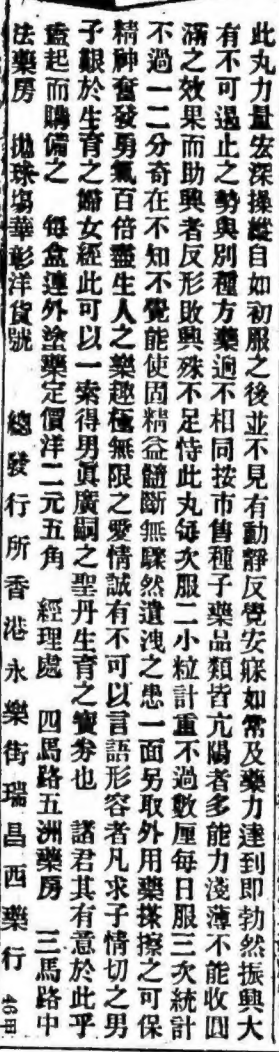 此丸力量宏深操縱自如初服之後並不見有動靜反覺安寐如常及藥力達到即勃然振興大
有不可遏止之勢與別種方藥迥不相同按市售種子藥品類皆亢陽者多能力淺薄不能收圓
滿之效果而助興者反形敗興殊不足恃此丸每次服二小粒計重不過數厘每日服三次統計
不過一二分奇在不知不覺能使固精益髓斷無驟然遺洩之患一面另取外用藥搽擦之可保
精神奮發勇氣百倍盡生人之樂趣極無限之愛情誠有不可以言語形容者凡求子情切之男
子艱於生育之婦女經此可以一索得男眞廣嗣之聖丹生育之寶劵也 諸君其有意於此乎
盍起而購備之 每盒連外塗藥定價洋二元五角 經理處 四馬路五洲藥房 三馬路中
法藥房 拋球塲華彰洋貨號 總發行所香港永樂街瑞昌西藥行